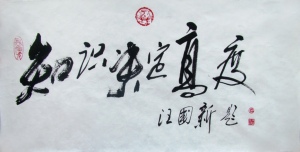 知识决定高度
汪國新题